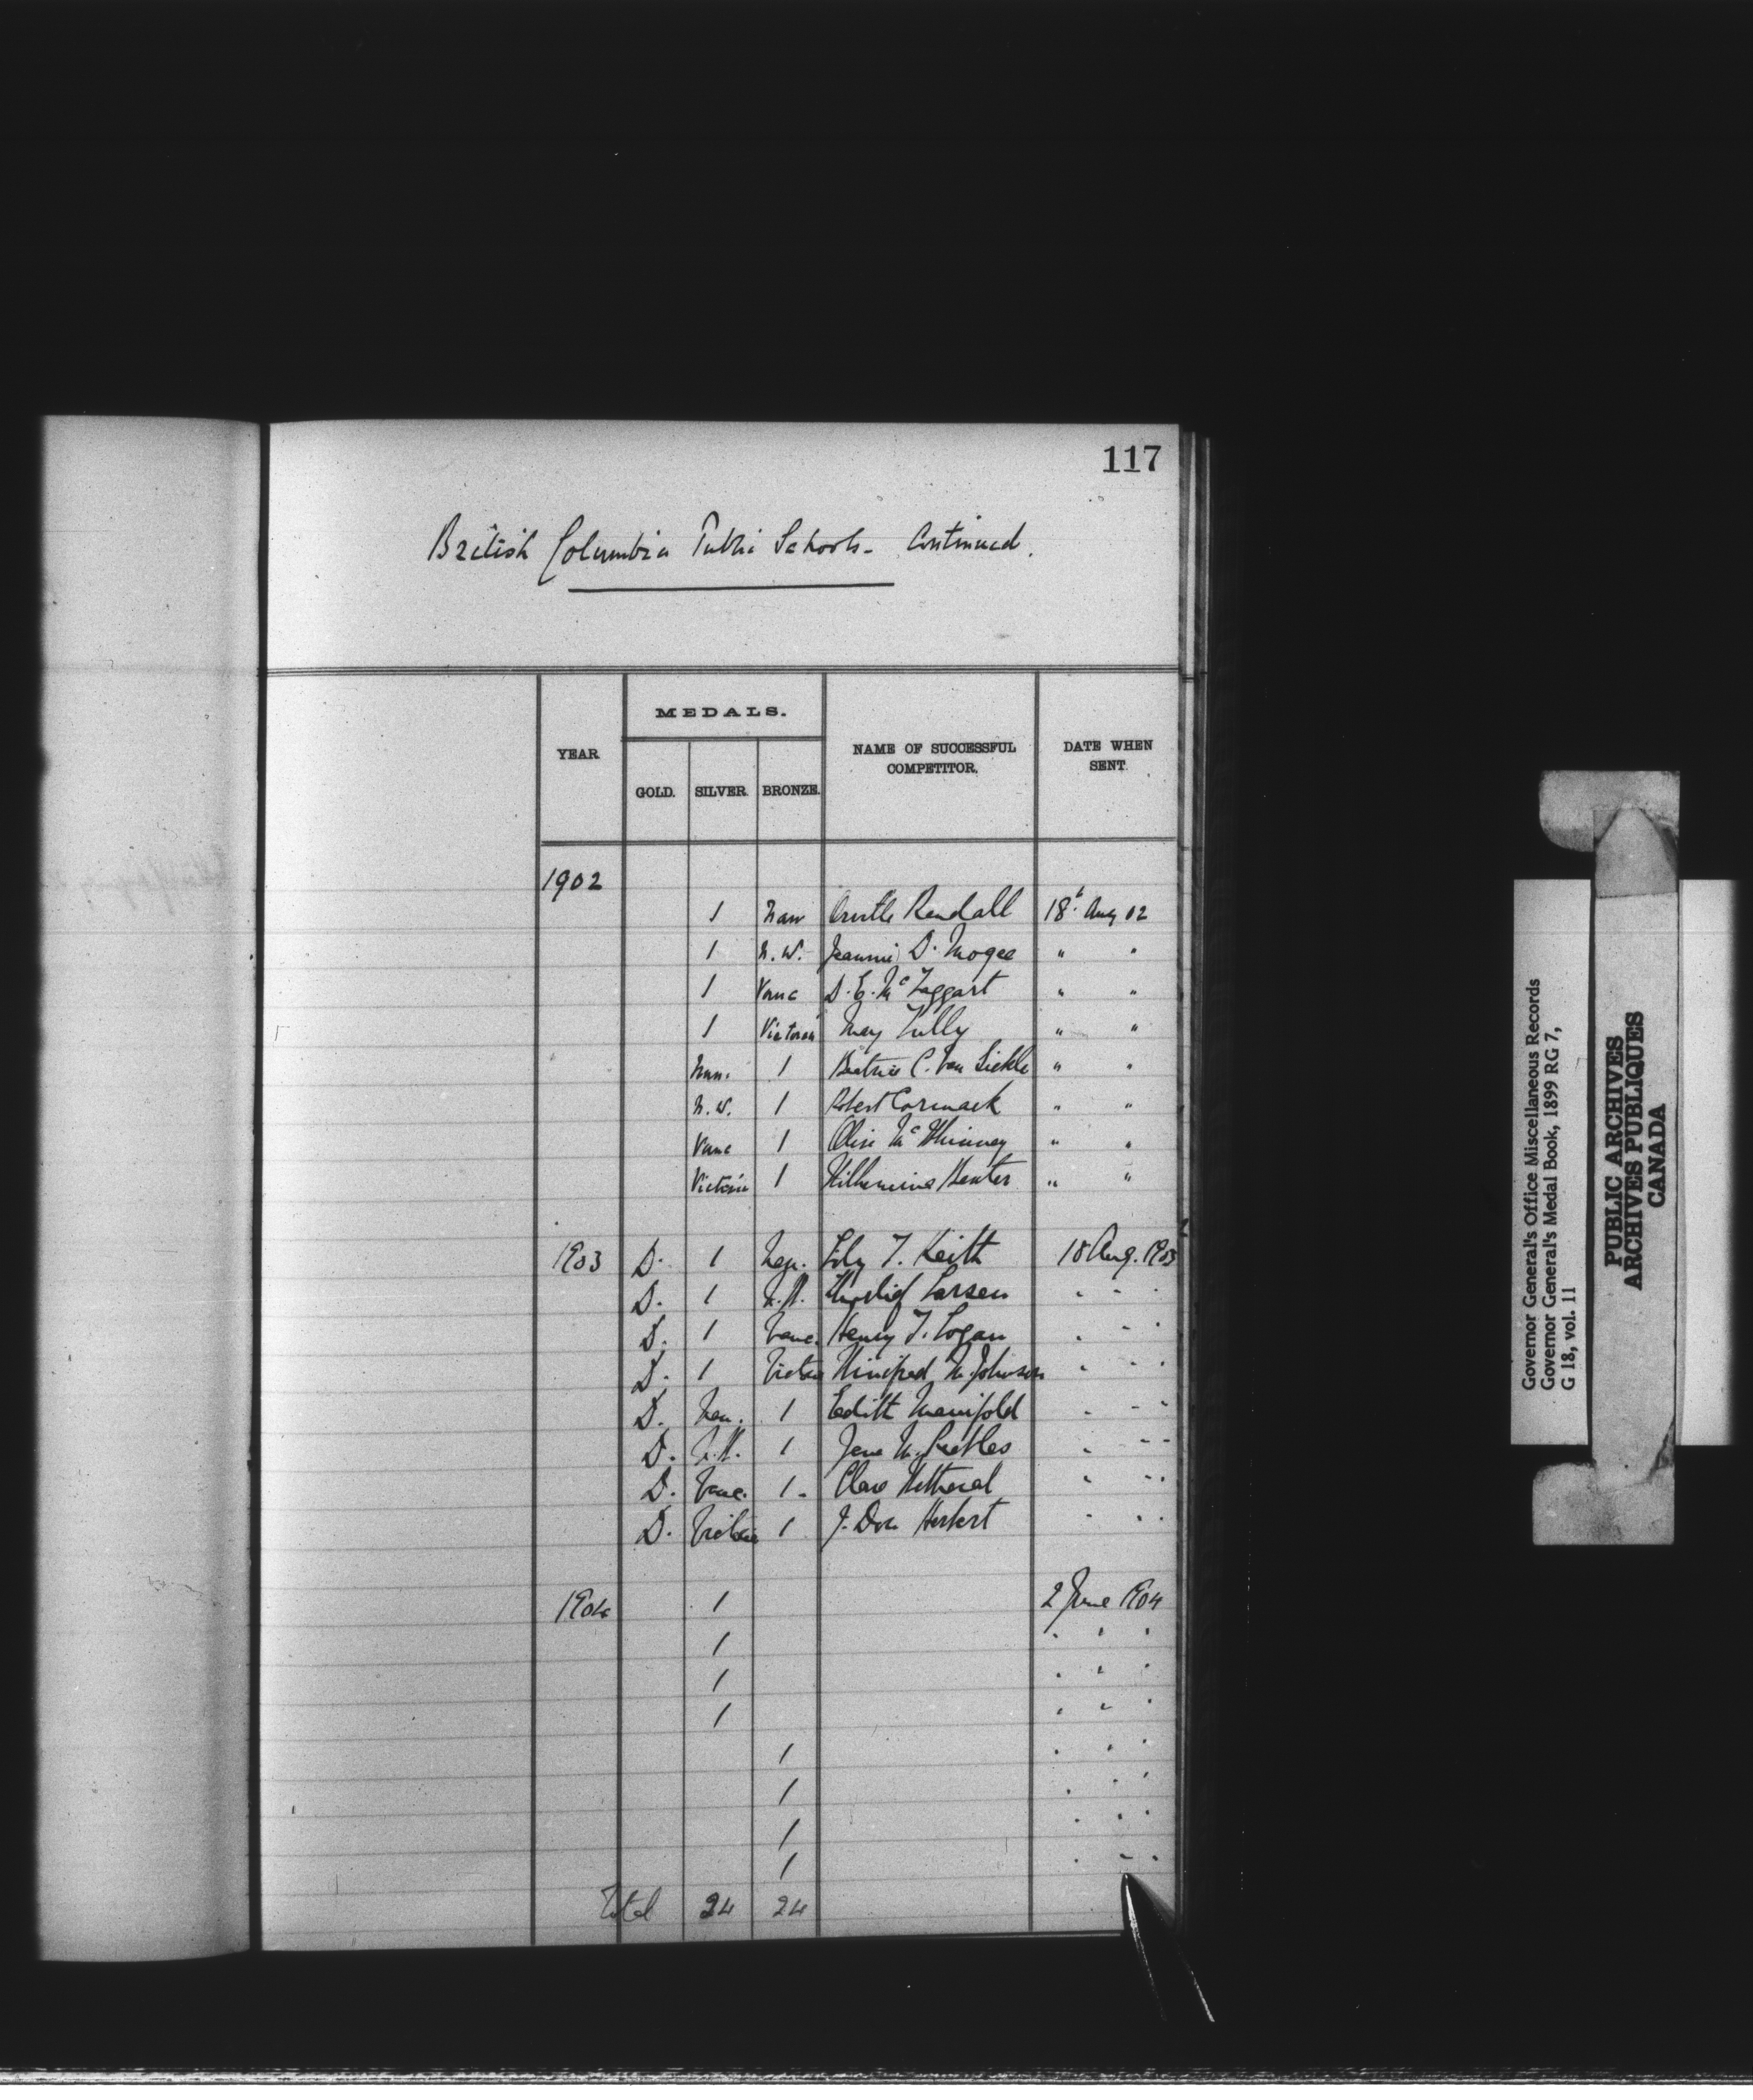 117
British Columbia Public Schools - Continued.
YEAR MEDALS. NAME OF SUCCESSFUL COMPETITOR. DATE WHEN SENT.
GOLD. SILVER. BRONZE.
1902
1 Nan Randall 18th Aug 02
1 N.W. Jeannie D. Mogee " "
1 Vanc D. E. McTaggart " "
1 Victoria May Tully " "
Nan. 1 Beatrice C. Van Sickle " "
N.W. 1 Robert Cormack " "
Vanc 1 Olive McWhinney " "
Victoria 1 Wilhemina " "
1903 D. 1 Lily T. Keith 18 Aug. 1903
D. 1 N.W. Larsen " " "
D. 1 Vanc. Henry T. Logan " " "
D. 1 Victoria Winifred M. Johnson " " "
D. Nan. 1 Edith Manifold " " "
D. N.W. 1 Jane M. Peebles " " "
D. Vanc. 1 - Clare " " "
D. Victoria 1 J. Don Herbert " " "
1904 1 2 June 1904
1 " " "
1 " " "
1 " " "
1 " " "
1 " " "
1 " " "
1 " " "
Total 24 24
Governor General's Office Miscellaneous Records
Governor General's Medal Book, 1899 RG 7,
G 18, vol. 11
PUBLIC ARCHIVES
ARCHIVES PUBLIQUES
CANADA